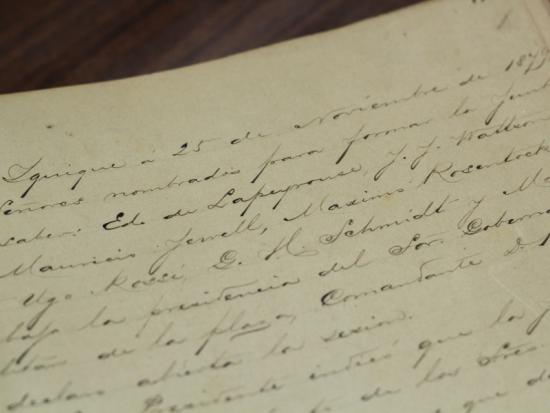 1
Iquique á 25 de Noviembre de 1879
Señores nombrados para formar la Junta
saber: Ed. de Lapeyrouse, J. J. Watson
Mauricio Jewell, Maximo Rosenstock
Ugo Rossi, G. H. Schmidt y
bajo la presidencia del Sor. Goberna
litar de la plaza, Comandante D.
declaró abierta la sesion.
Presidente indicó que la
de los Sres.
que